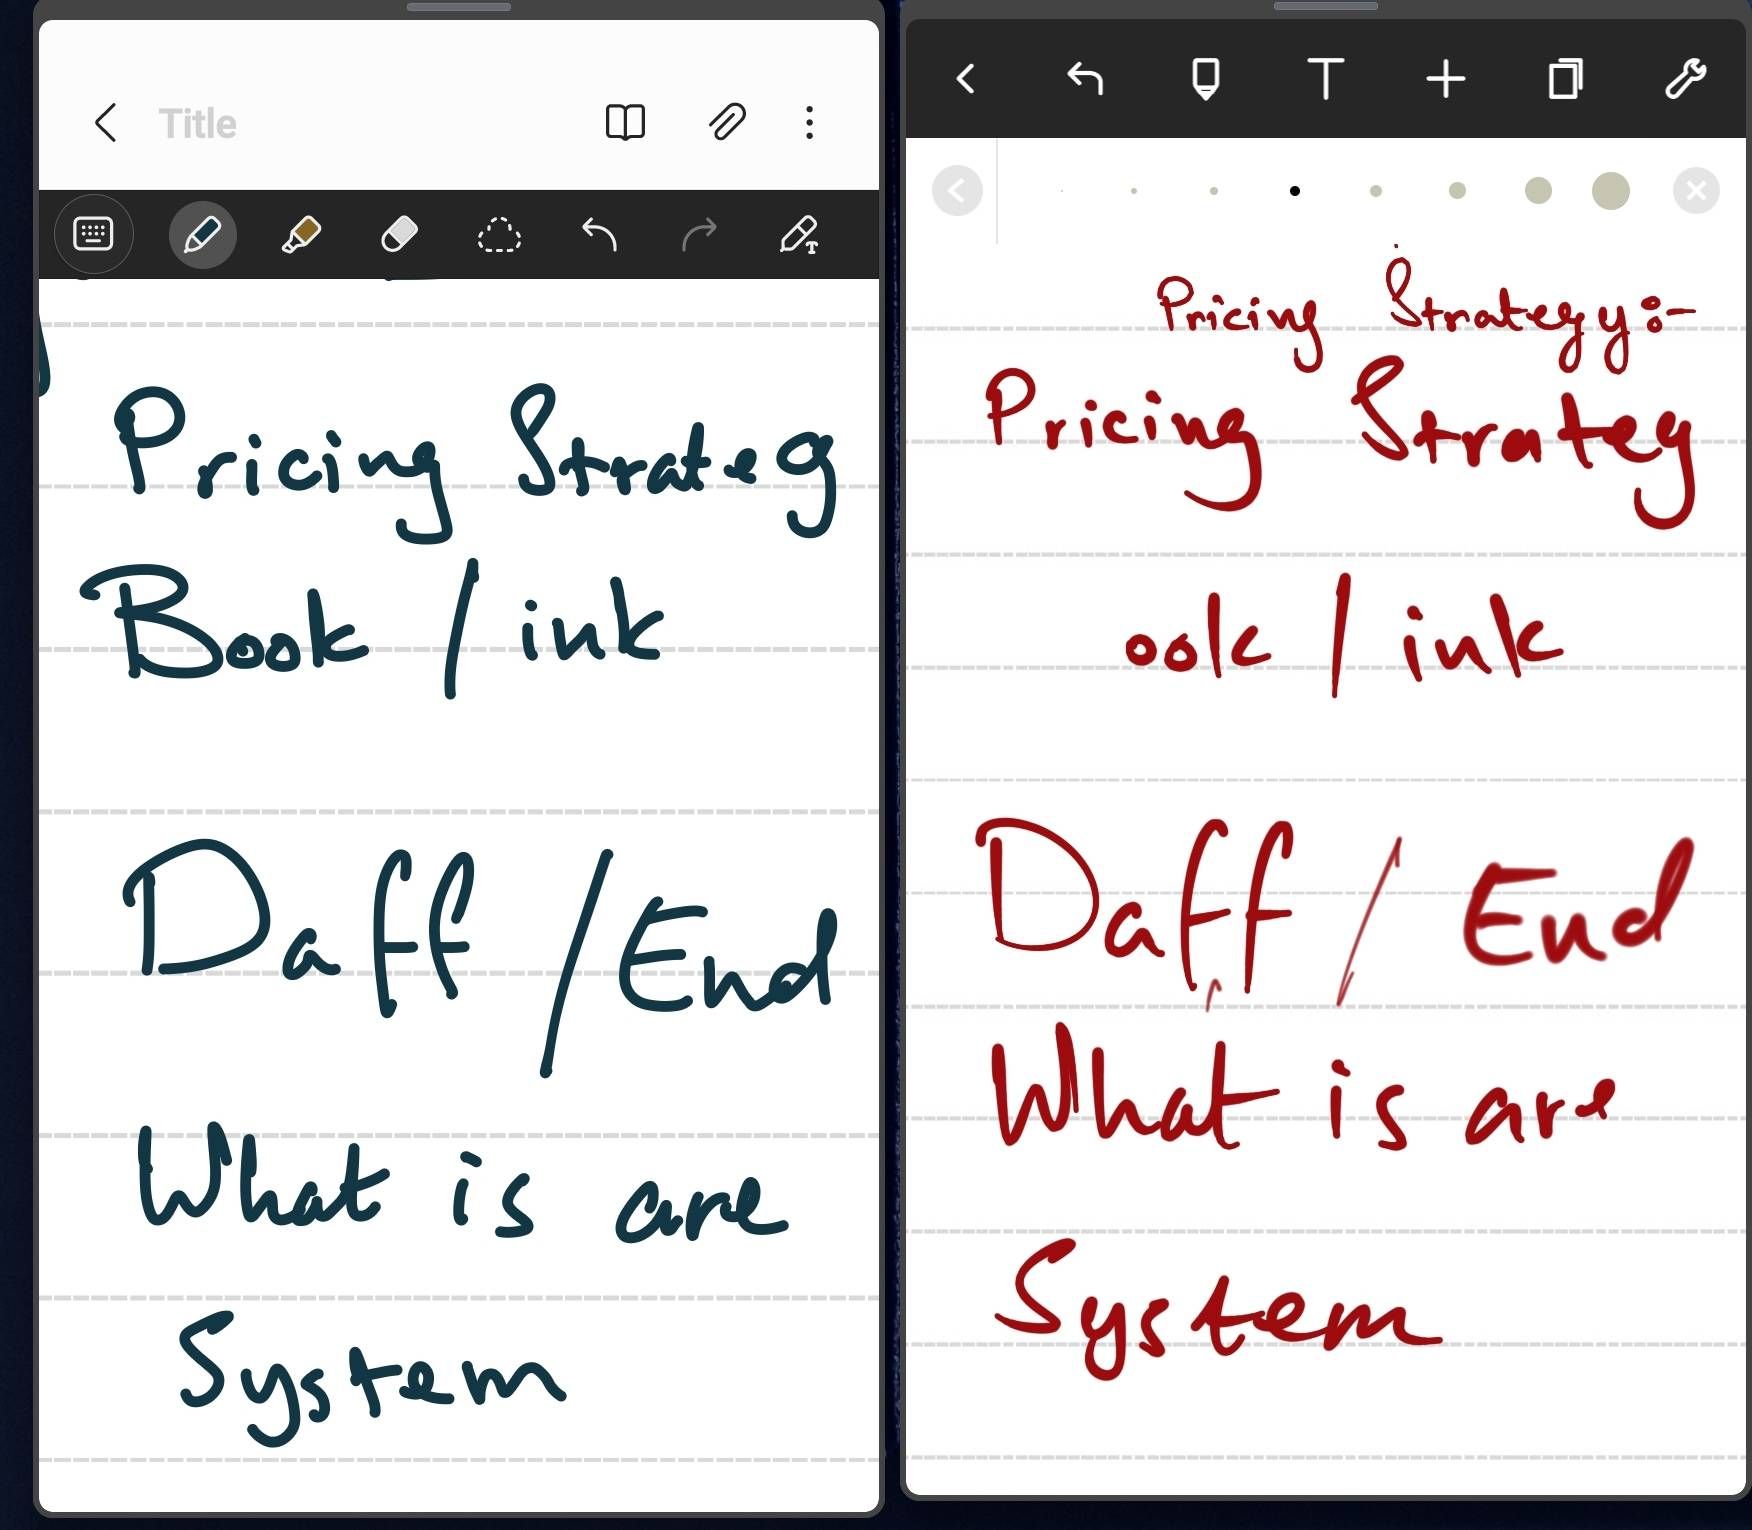 Title
Pricing Strateg
Book / ink
Daff / End
What is are
System
Pricing Strategy:-
Pricing Strateg
ook / ink
Daff / End
What is are
System